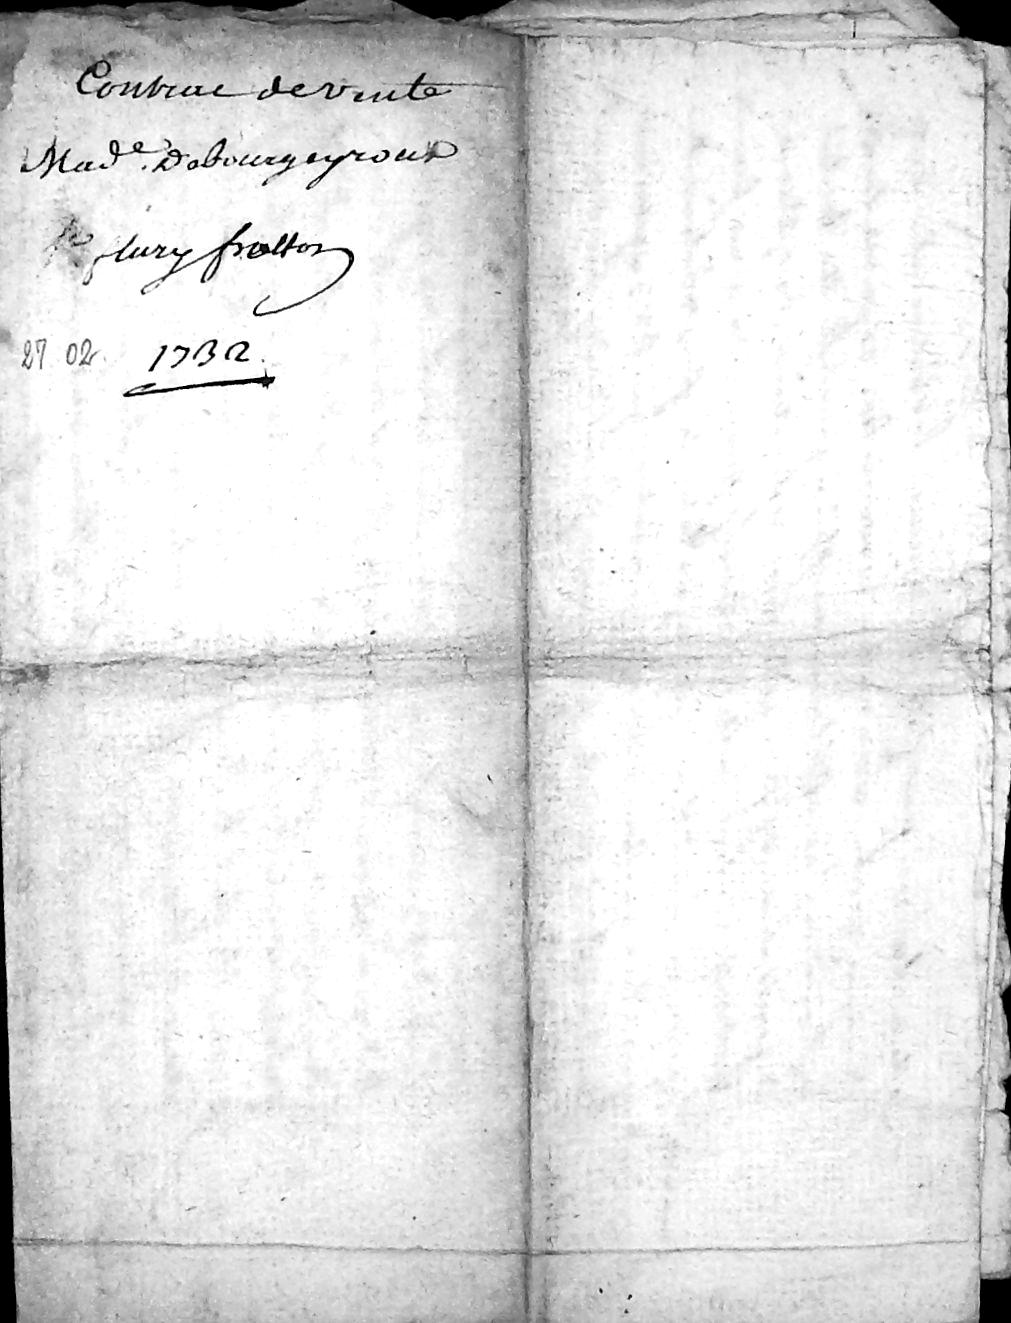 Contrac de vente
Made. Debourgeyroux
fleury frolton
27 02 1732